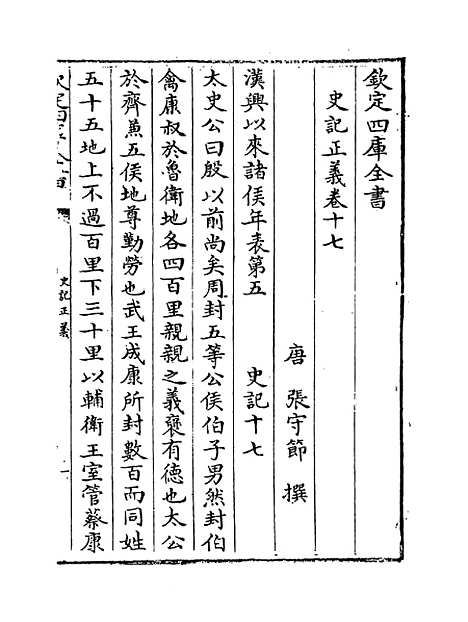 欽定四庫全書
史記正義卷十七
唐 張守節 撰
漢興以來諸侯年表第五 史記十七
太史公曰殷以前尚矣周封五等公侯伯子男然封伯
禽康叔於魯衛地各四百里親親之義襃有德也太公
於齊兼五侯地尊勤勞也武王成康所封數百而同姓
五十五地上不過百里下三十里以輔衛王室管蔡康
欽定四庫全書
史記正義
一